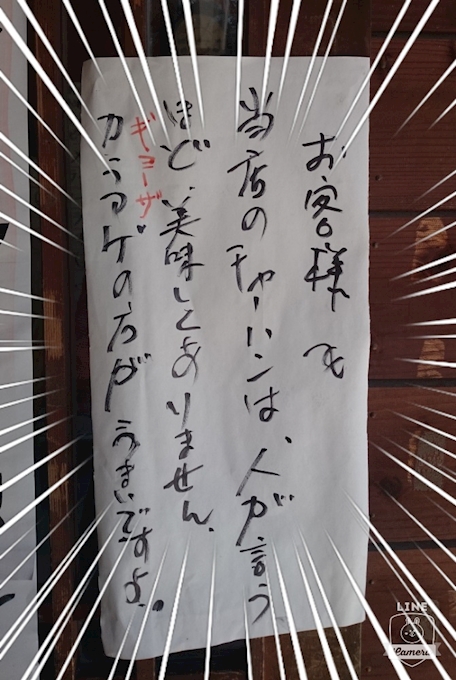 お客様へ
当店のチャーハンは、人が言う
ほど、美味しくありません。
ギョーザ
カラアゲの方がうまいですよ。
LINE
Camera